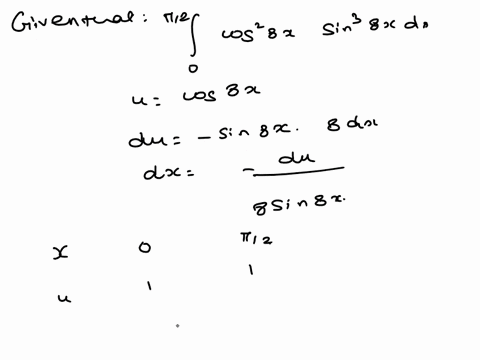 Given that: π/2 ∫ 0 cos² 8x sin³ 8x dx
u = cos 8x
du = - sin 8x . 8 dx
dx = - du / 8 sin 8x.
x 0 π/2
u 1 1